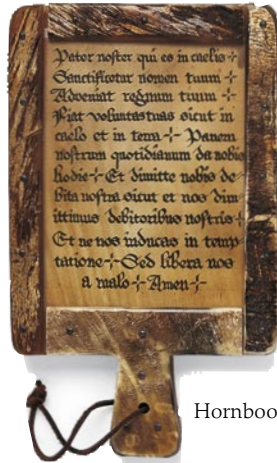 Pater noster qui es in caelis ✢
Sanctificetur nomen tuum ✢
Adveniat regnum tuum ✢
Fiat voluntas tuas sicut in
caelo et in terra ✢ Panem
nostrum quotidianum da nobis
hodie ✢ Et dimitte nobis de-
bita nostra sicut et nos dim-
ittimus debitoribus nostris ✢
Et ne nos inducas in temp-
tatione ✢ Sed libera nos
a malo ✢ Amen ✢
Hornboo